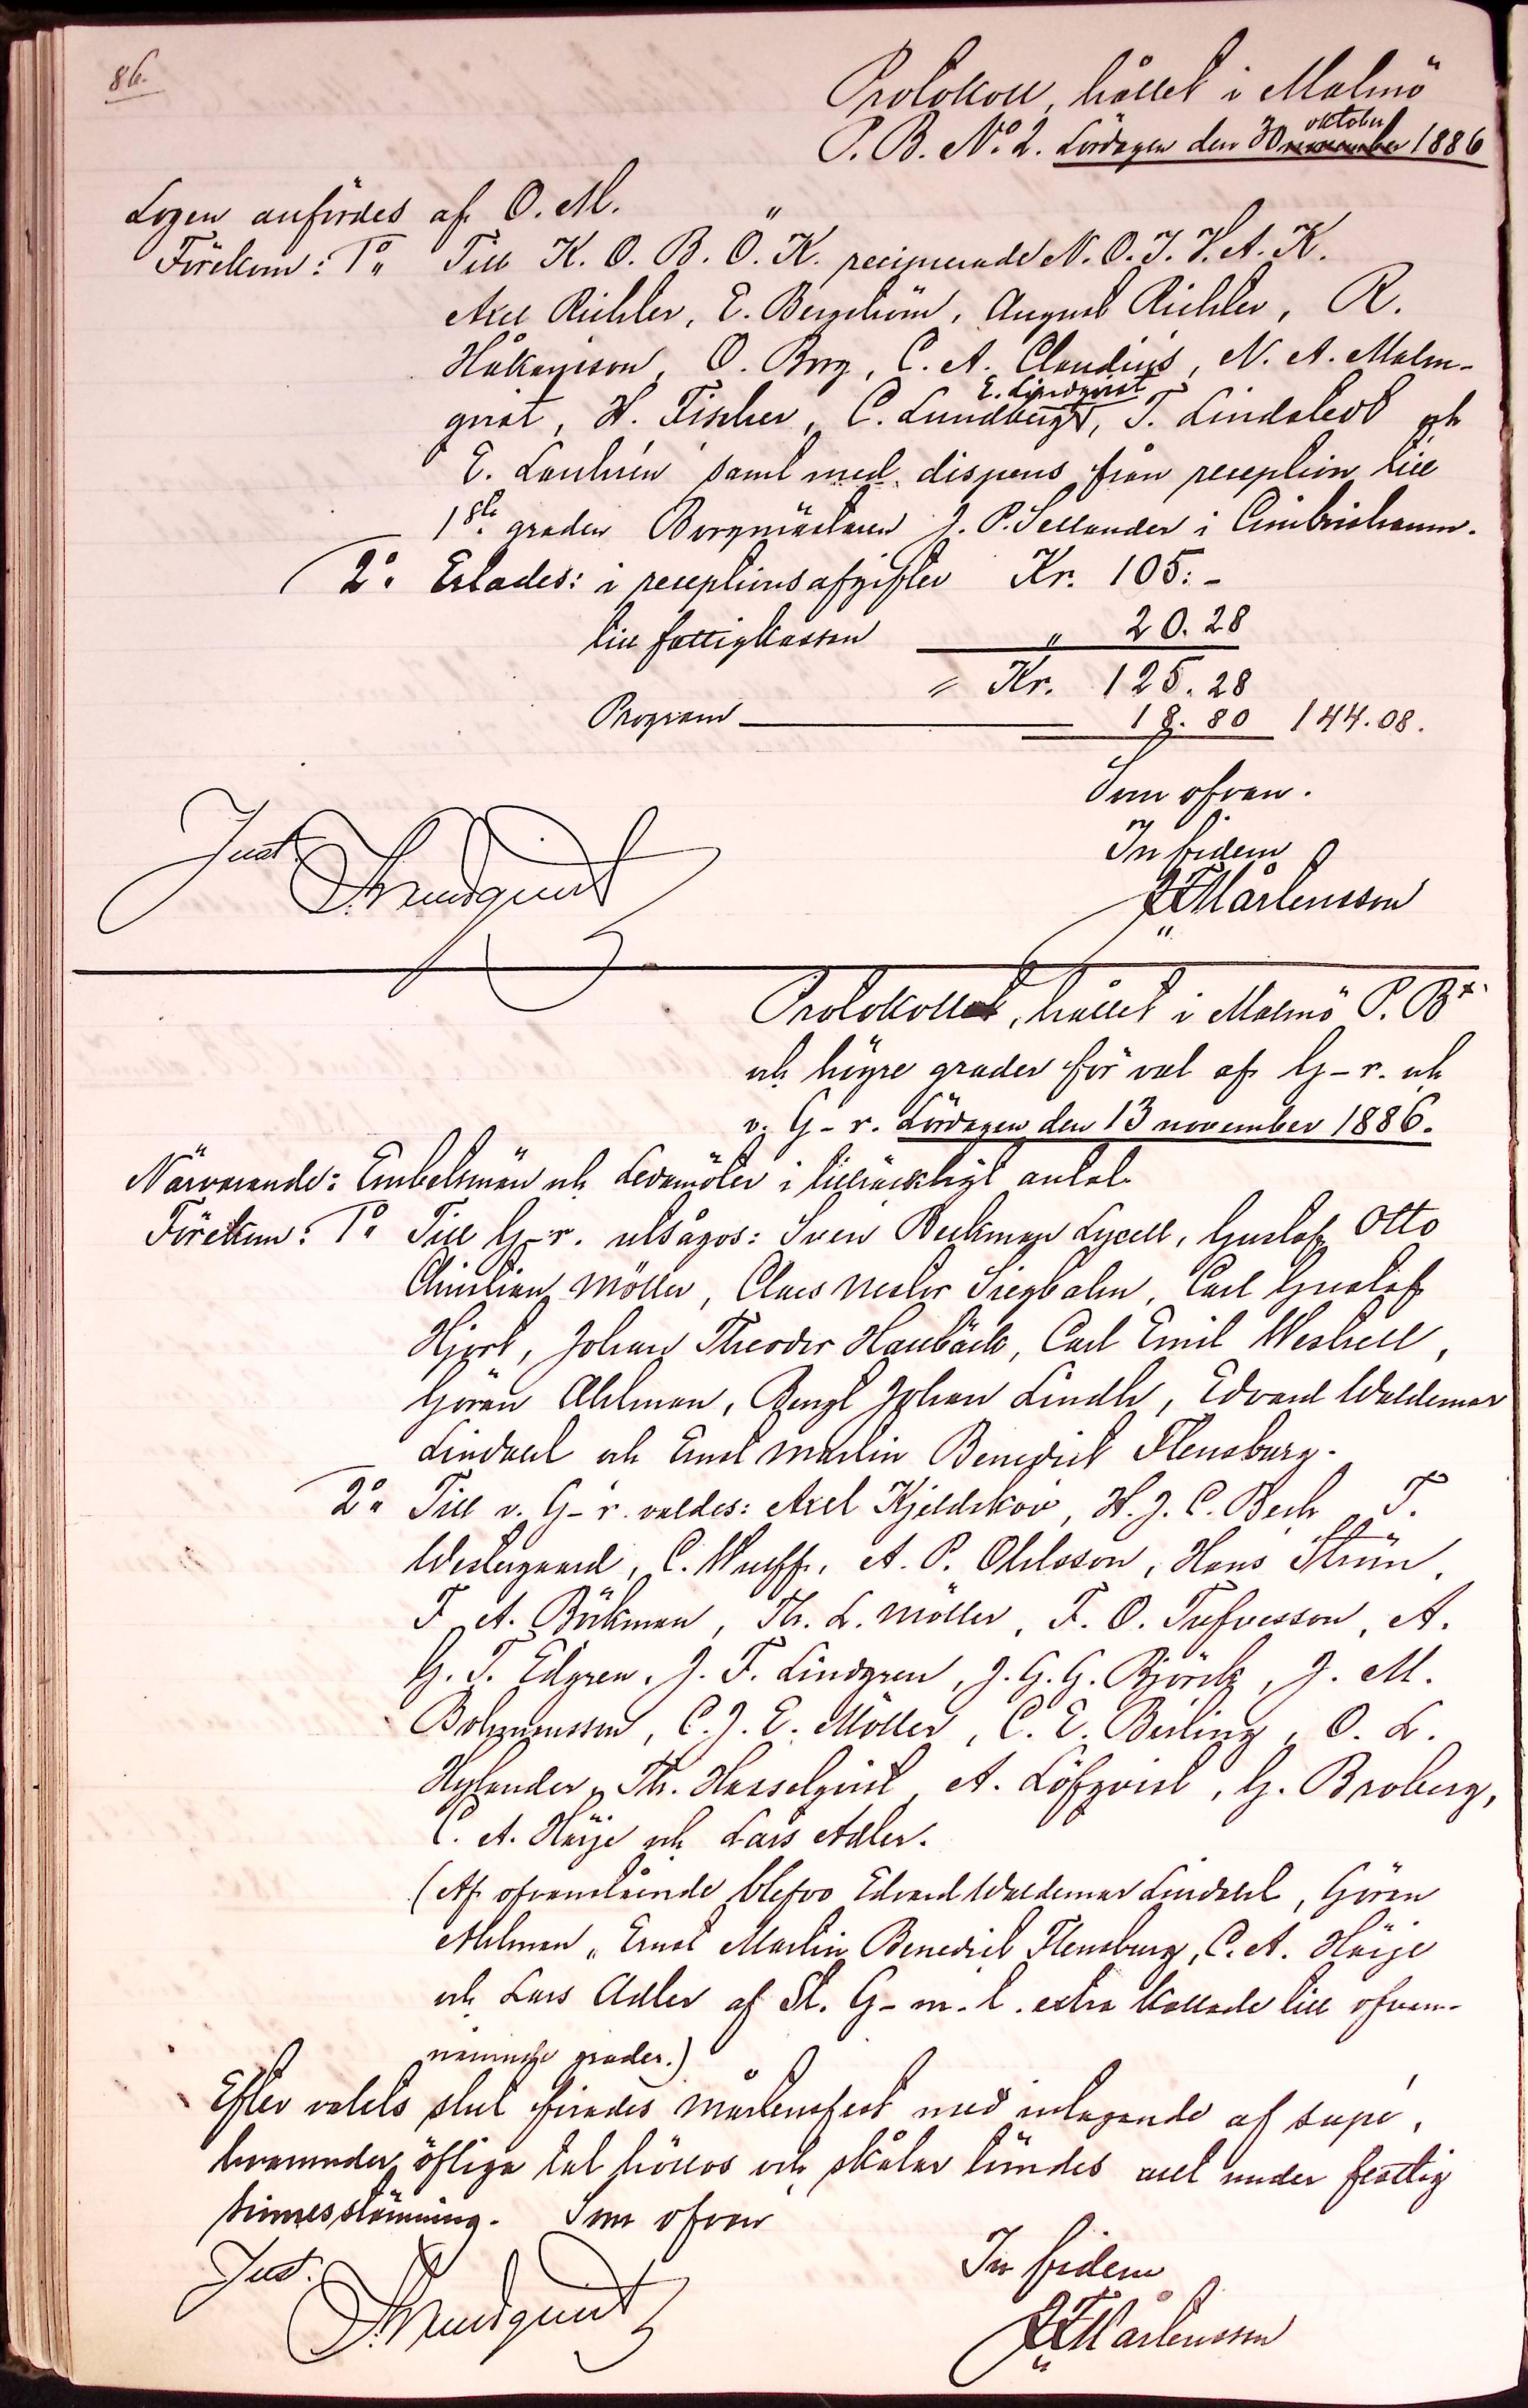 86.
Protokoll, hållet i Malmö
P. B. No. 2. Lördagen den 30 november oktober 1886
Logen anfördes af O. M.
Förekom: 1o Till K. O. B. Ö. K. recipierade N. O. J. H. A. K.
Axel Richter, E. Bergström, August Richter, R.
Håkansson, O. Borg, C. A. Claudius, N. A. Malm-
E. Lindqvist
qvist, H. Fischer, C. Lundberg, T. Lindstedt och
E. samt med dispens från reception till
1sta graden Borgmästaren J. P. Sellander i Cimbrishamn.
2o Erlades: i receptionsafgifter Kr. 105:-
till fattigkassan " 20.28
= Kr. 125.28
Program 18.80 144.08.
Som ofvan.
In fidem
Just.
Mårtensson
Protokoll, hållet i Malmö P. B.
och högre grader för val af G-r. och
v. G-r. Lördagen den 13 november 1886.
Närvarande: Embetsmän och Ledamöter i tillräckligt antal.
Förekom: 1o Till G-r. utsågos: Sven Beckman Lycell, Gustaf Otto
Christian Möller, Claes Nestor Siegbahn, Carl Gustaf
Hjort, Johan Theodor Haubäck, Carl Emil Westrell,
Göran Ahlman, Bengt Johan Lindh, Edvard Waldemar
Lindahl och Ernst Martin Benedict Flensburg.
2o Till v. G-r. valdes: Axel Kjeldskov, H. J. C. Bech, T.
Westergaard, C. Wulff, A. P. Ohlsson, Hans Ström,
F. A. Böckman, Th. L. Möller, F. O. Tufvesson, A.
G. T. Edgren, J. F. Lindgren, J. G. G. Björck, J. M.
C. J. E. Möller, C. E. Berling, O. L.
Hylander, Th. Hasselqvist, A. Löfqvist, G. Broberg,
C. A. Höije och Lars Adler.
(Af ofvanstående blefvo Edvard Waldemar Lindahl, Göran
Ahlman, Ernst Martin Benedict Flensburg, C. A. Höije
och Lars Adler af St. G-m-l. extra kallade till ofvan-
nämnda grader.)
Efter valets slut firades mårtensfest med intagande af supé,
hvarunder öfliga tal höllos och skålar tömdes allt under festlig
sinnesstämning. Som ofvan
Just.
In fidem
Mårtensson